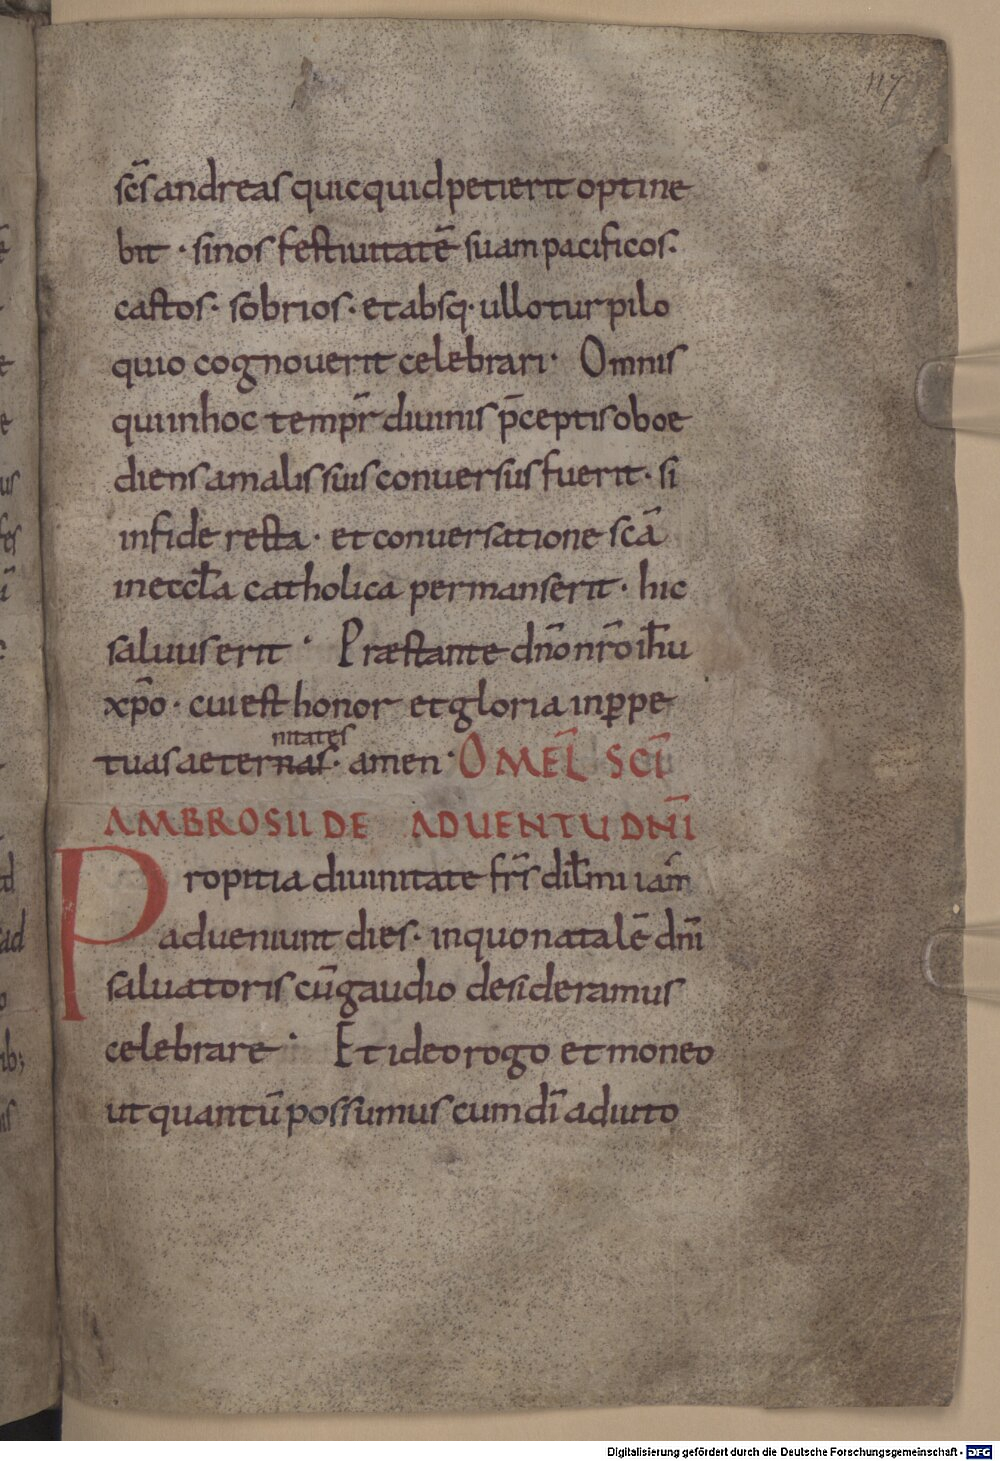 117
sc̄s andreas quicquid petierit optine
bit · si nos festiuitatē suam pacificos·
castos· sobrios· et absq· ullo turpilo
quio cognouerit celebrari· Omnis
qui in hoc temp̄r diuinis p̄ceptis oboe
diens a malis suis conuersus fuerit· si
in fide recta· et conuersatione scā
in eccl̄a catholica permanserit· hic
saluus erit · Præstante dn̄o nr̄o ih̄u
xp̄o· cui est honor et gloria in perpe
nitates
tuas aeternas· amen· OMEL̄ SCĪ
AMBROSII DE ADUENTU DN̄I
Propitia diuinitate fr̄s dil̄mi iam
adueniunt dies· in quo natalē dn̄i
saluatoris cū gaudio desideramus
celebrare · Et ideo rogo et moneo
ut quantū possumus cum dī adiuto
Digitalisierung gefördert durch die Deutsche Forschungsgemeinschaft - DFG